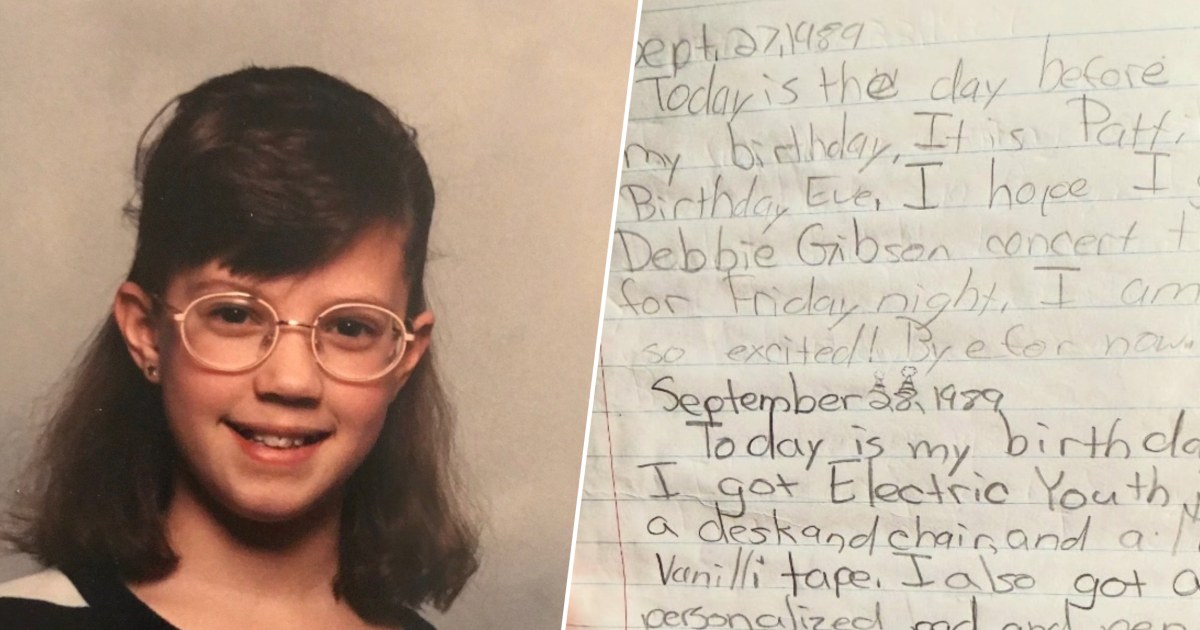 ept, 27, 1989
Today is the day before
my birthday. It is Patti
Birthday Eve. I hope I
Debbie Gibson concert t
for Friday night. I am
so excited! Bye for now.
September 28, 1989
Today is my birthda
I got Electric Youth,
a desk and chair, and a
Vanilli tape. I also got a
personalized pad and pen